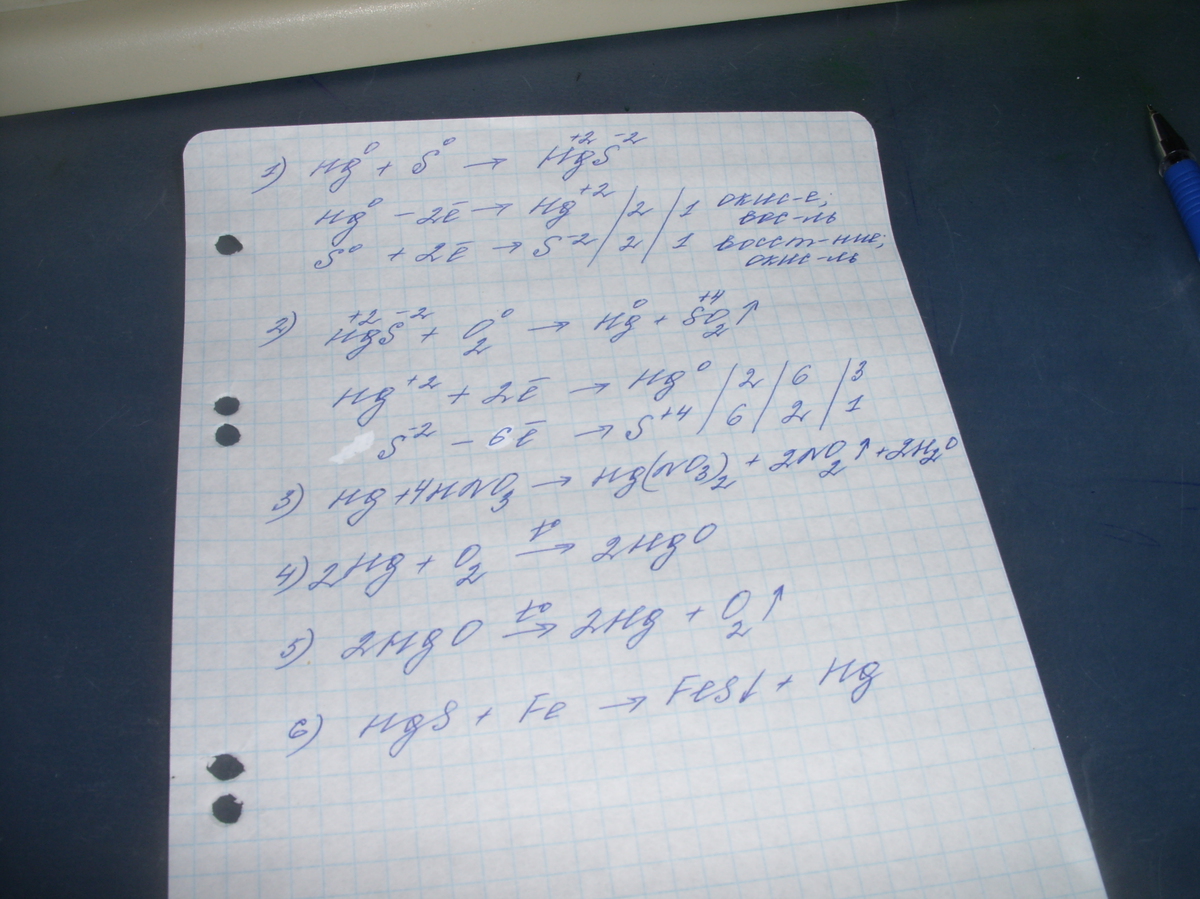 1) Hg⁰ + S⁰ → Hg⁺²S⁻²
Hg⁰ - 2ē → Hg⁺² / 2 / 1 окис-е; вос-ль
S⁰ + 2ē → S⁻² / 2 / 1 восст-ние; окис-ль
2) Hg⁺²S⁻² + O₂⁰ → Hg⁰ + S⁺⁴O₂↑
Hg⁺² + 2ē → Hg⁰ / 2 / 6 / 3
S⁻² - 6ē → S⁺⁴ / 6 / 2 / 1
3) Hg + 4HNO₃ → Hg(NO₃)₂ + 2NO₂↑ + 2H₂O
4) 2Hg + O₂ →t° 2HgO
5) 2HgO →t° 2Hg + O₂↑
6) HgS + Fe → FeS↓ + Hg